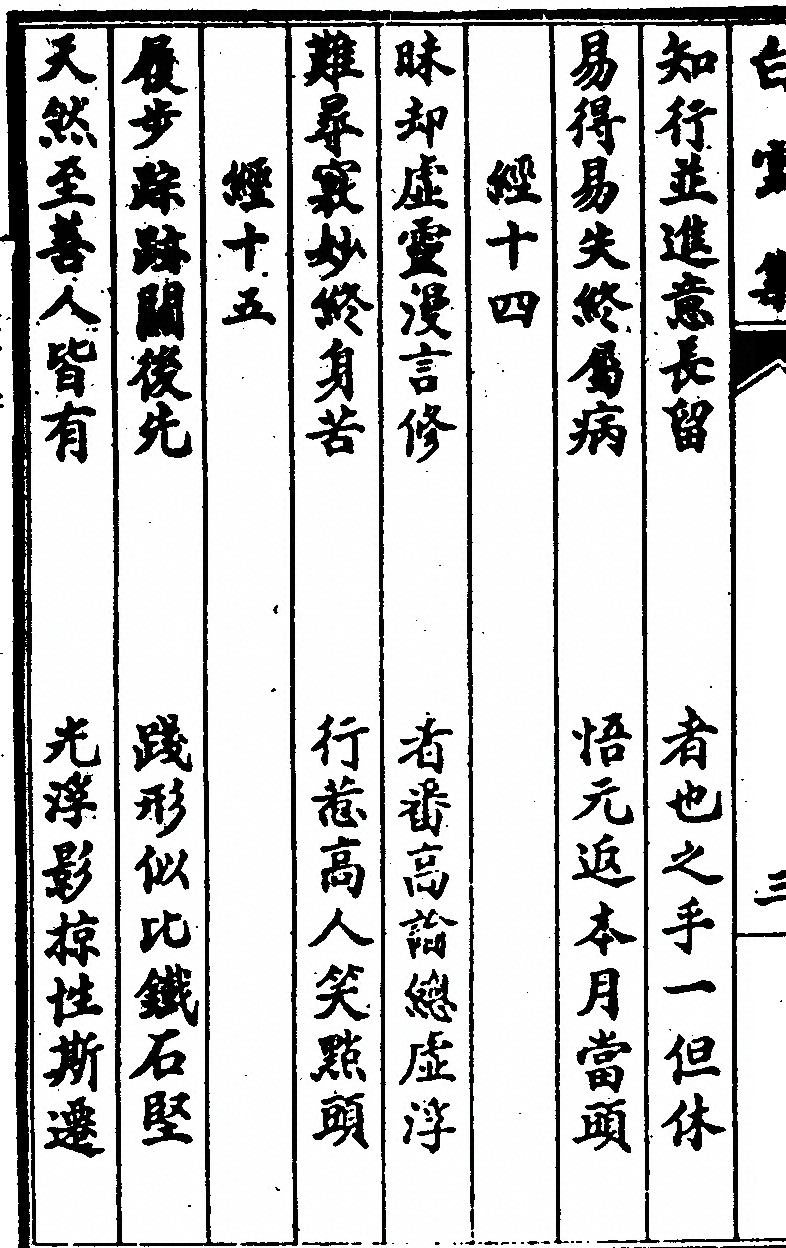 白雲集
三
知行並進意長留　者也之乎一但休
易得易失終屬病　悟元返本月當頭
經十四
昧却虛靈漫言修　者番高論總虛浮
難尋竅妙終身苦　行惹高人笑點頭
經十五
履步踪跡關後先　踐形似比鐵石堅
天然至善人皆有　光浮影掠性斯遷